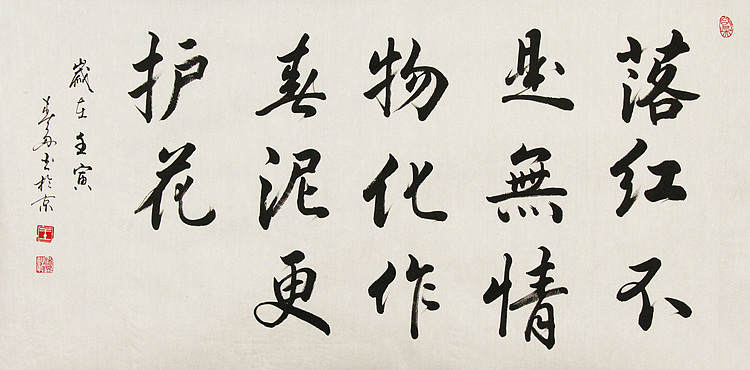 落红不
是無情
物化作
春泥更
护花
歲在壬寅
书於京